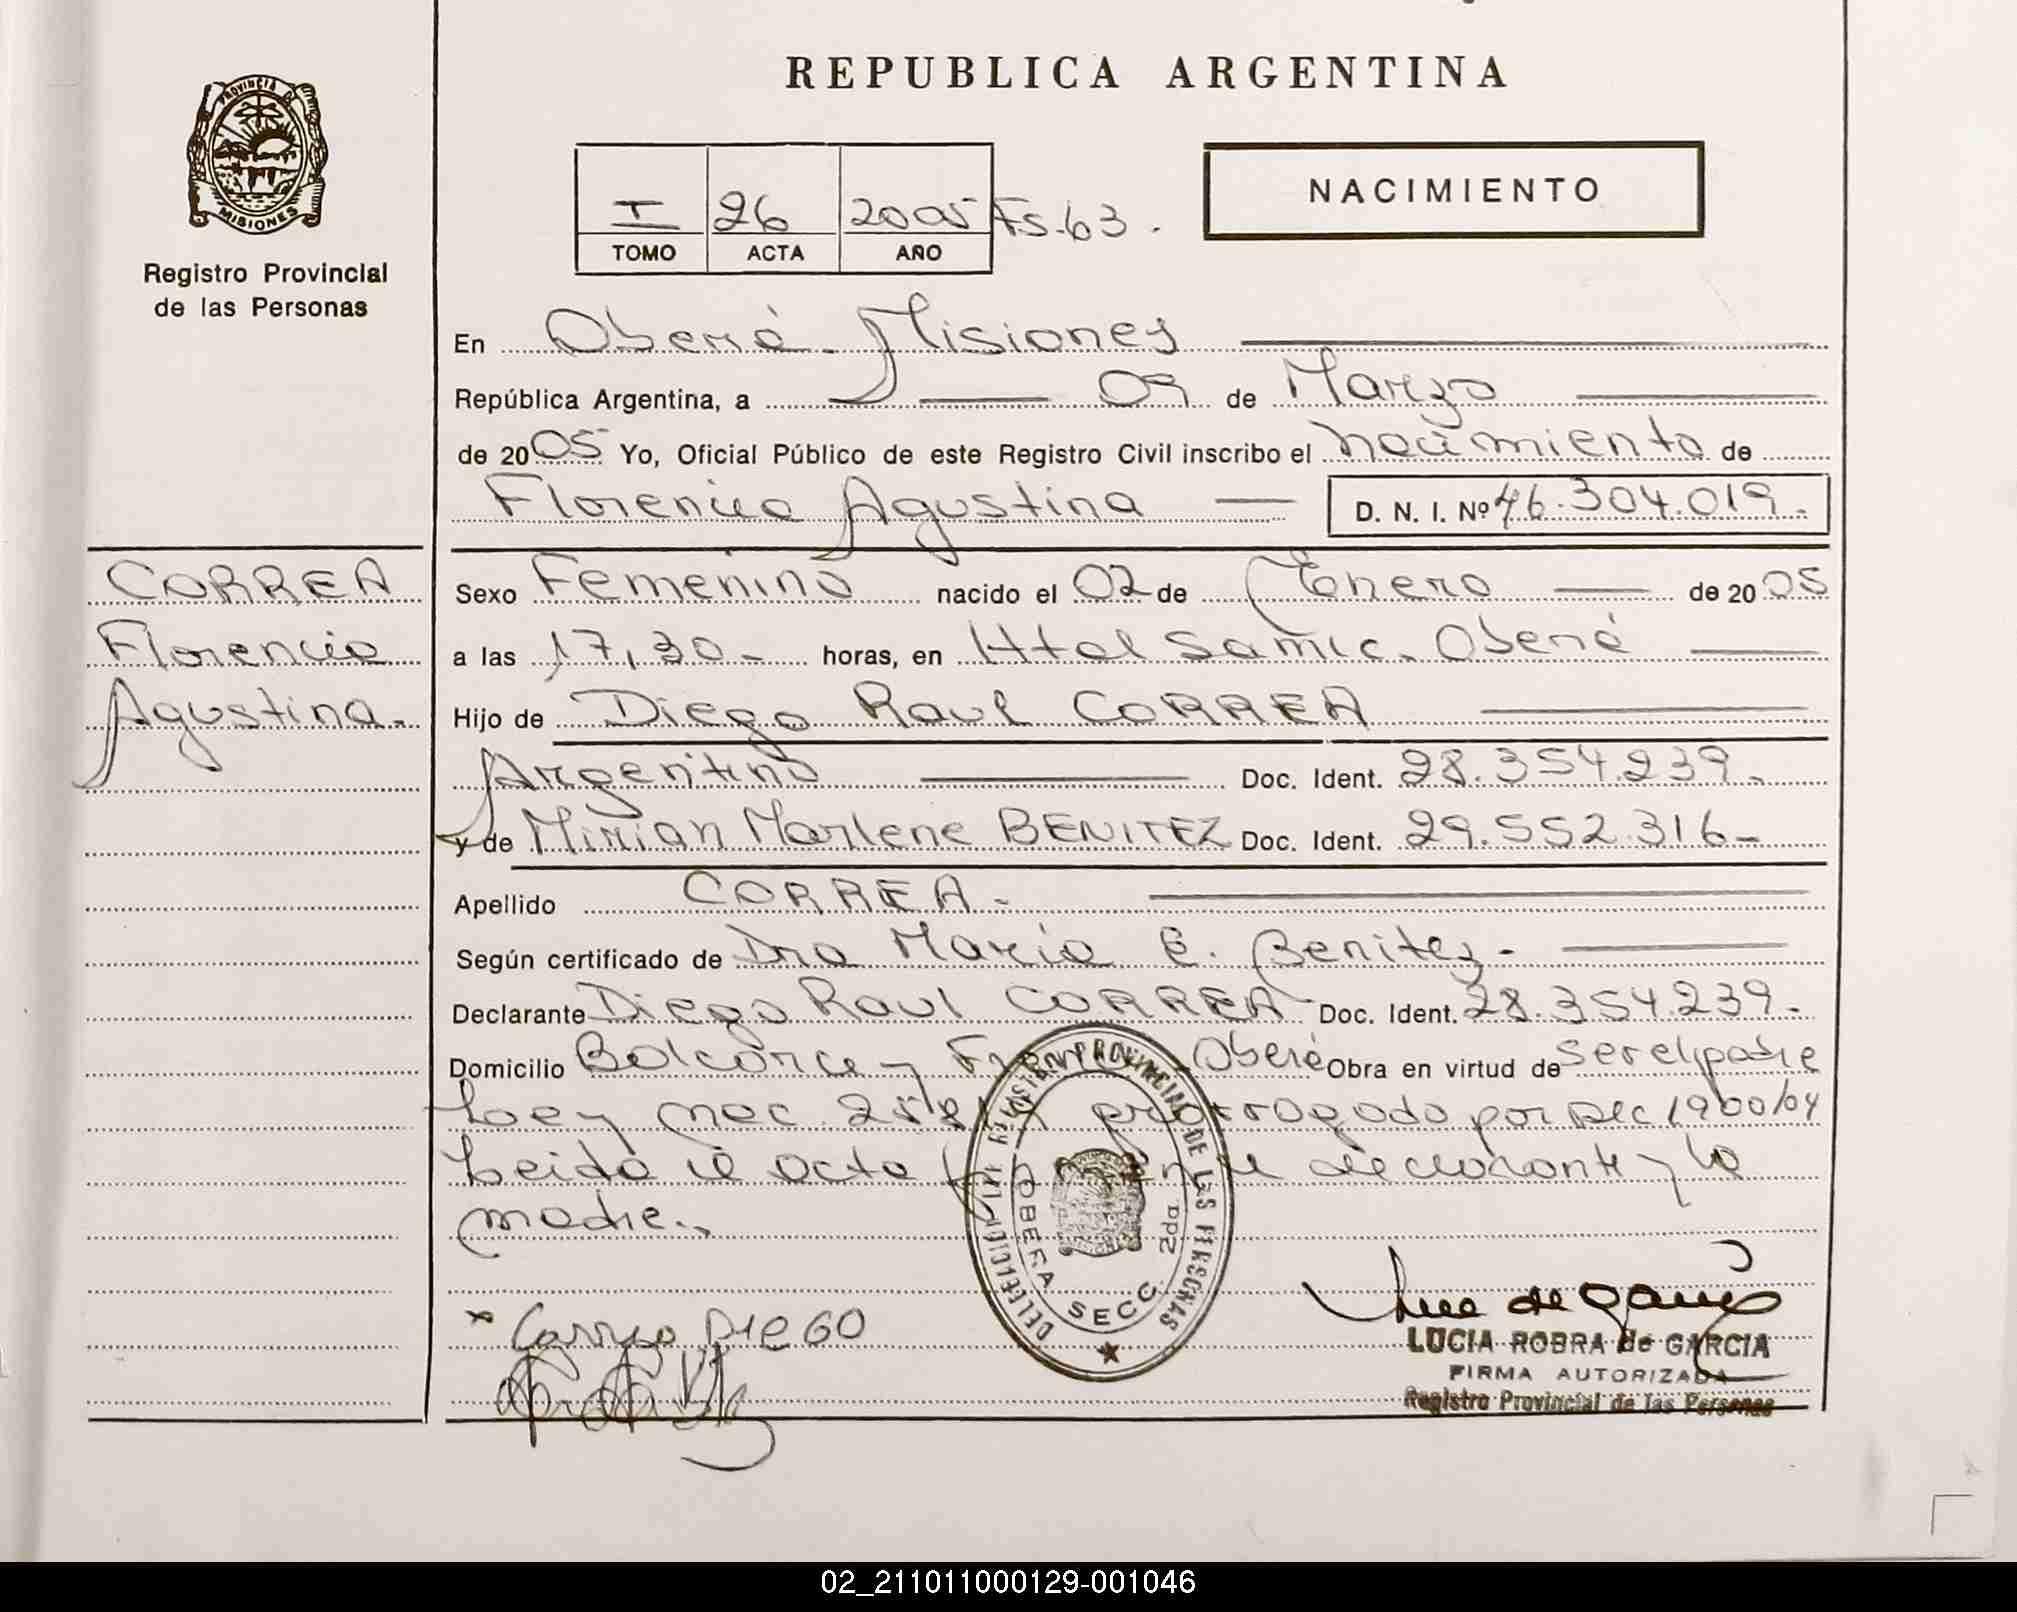 REPUBLICA ARGENTINA
PROVINCIA DE
MISIONES
Registro Provincial
de las Personas
I 26 2005 Fs. 63.
TOMO ACTA AÑO
NACIMIENTO
En Oberá - Misiones
República Argentina, a 09 de Marzo
de 2005 Yo, Oficial Público de este Registro Civil inscribo el nacimiento de
Florencia Agustina D. N. I. Nº 46.304.019.-
CORREA
Florencia
Agustina.-
Sexo Femenino nacido el 02 de Enero de 2005
a las 17,30 - horas, en Htal Samic. Oberá
Hijo de Diego Raul CORREA
Argentino Doc. Ident. 28.354.239.-
y de Mirian Marlene BENITEZ Doc. Ident. 29.552.316-
Apellido CORREA.-
Según certificado de Dra Maria E. Benitez.-
Declarante Diego Raul CORREA Doc. Ident. 28.354.239.-
Domicilio Balcarce y Oberá Obra en virtud de ser el padre
Ley nac. prorrogado por Dec 1900/04
Leida el acta el declarante y la
madre.-
DELEGACION REGISTRO PROVINCIAL DE LAS PERSONAS
OBERA SECC. 2da.
DIEGO
LUCIA ROBRA de GARCIA
FIRMA AUTORIZADA
Registro Provincial de las Personas
02_211011000129-001046